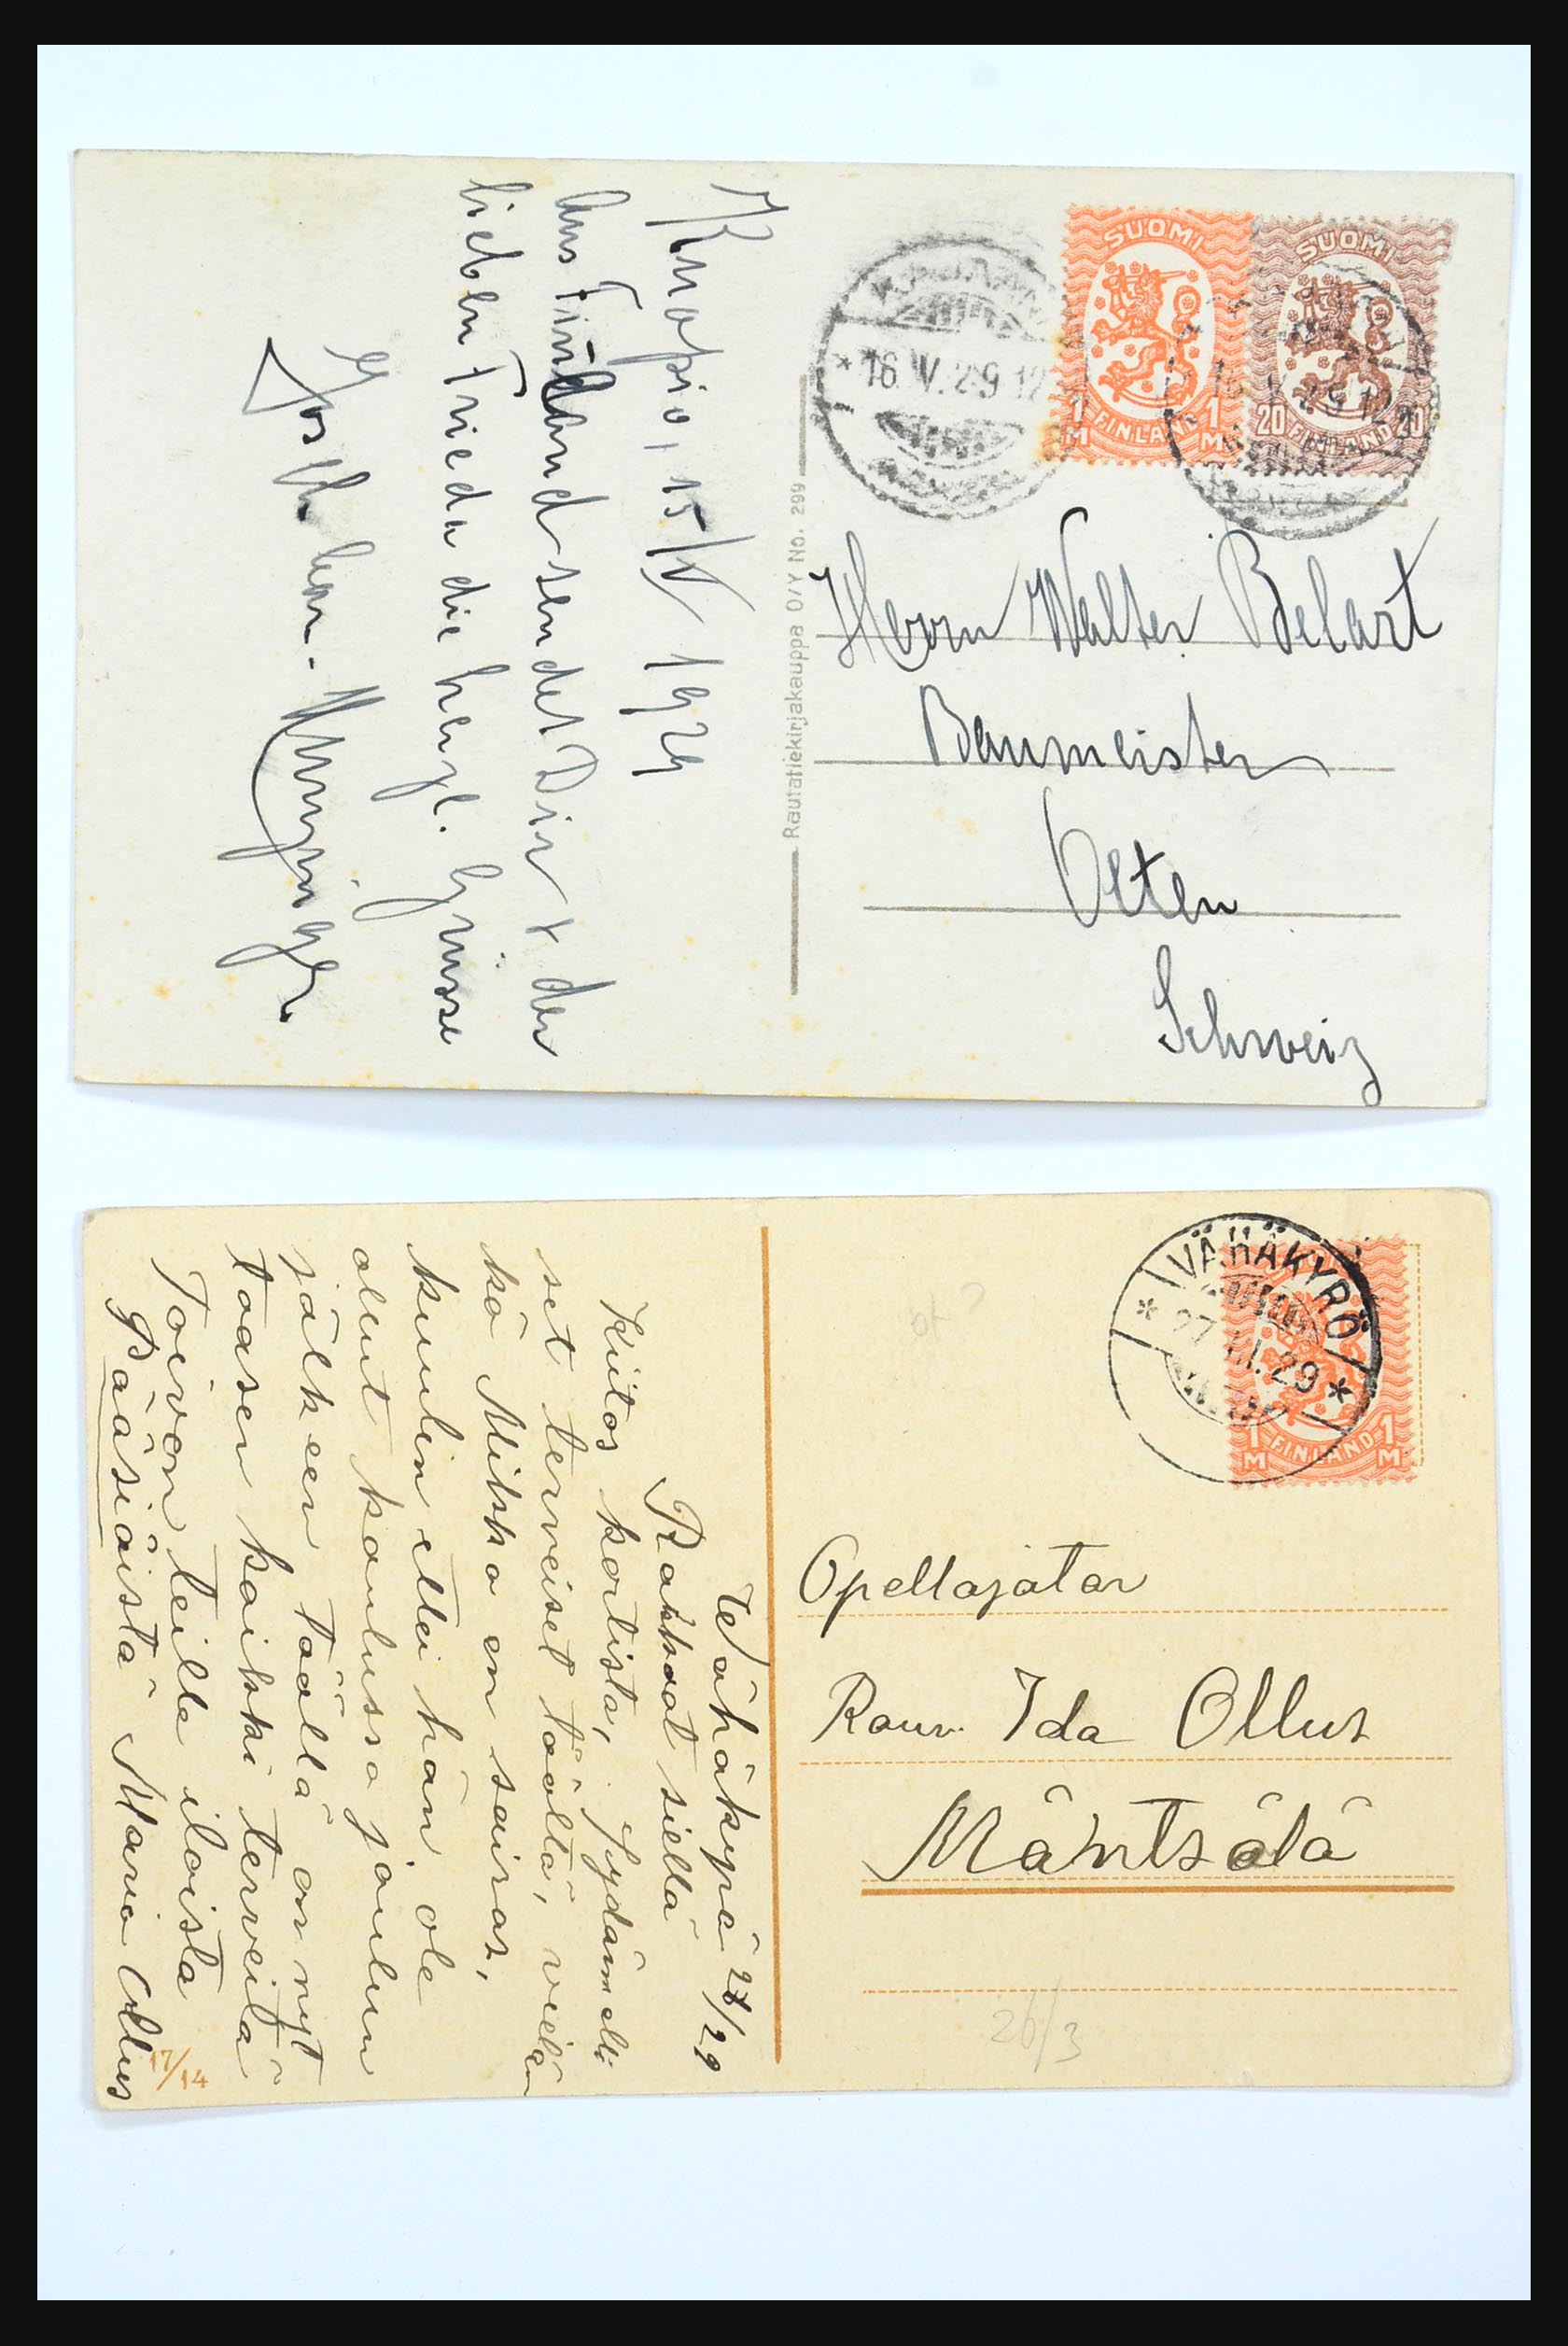 Kuopio, 15/V 1929
Aus Finnland sendet Dir & der
lieben Frieda die herzl. Grüsse
SUOMI
1 M FINLAND 1 M
SUOMI
20 FINLAND 20
*16.V.29.12
Rautatiekirjakauppa O/Y No. 299
Herrn Walter Belart
Baumeister
Olten
Schweiz
VÄHÄKYRÖ
* 27.III.29 *
1 M FINLAND 1 M
Wähäkyrö 28/29
Rakkaat siellä
Kiitos kortista, Sydämelli
set terveiset täältä, vielän
kö Mikko on sairas,
kuulin ettei hän ole
olunt koulussa joulun
jälkeen täällä on nyt
taasen kaikki terveitä
Toivon teille iloista
Pääsiäistä Maria Ollus
17/14
Opettajatar
Rouv. Ida Ollus
Mäntsälä
26/3